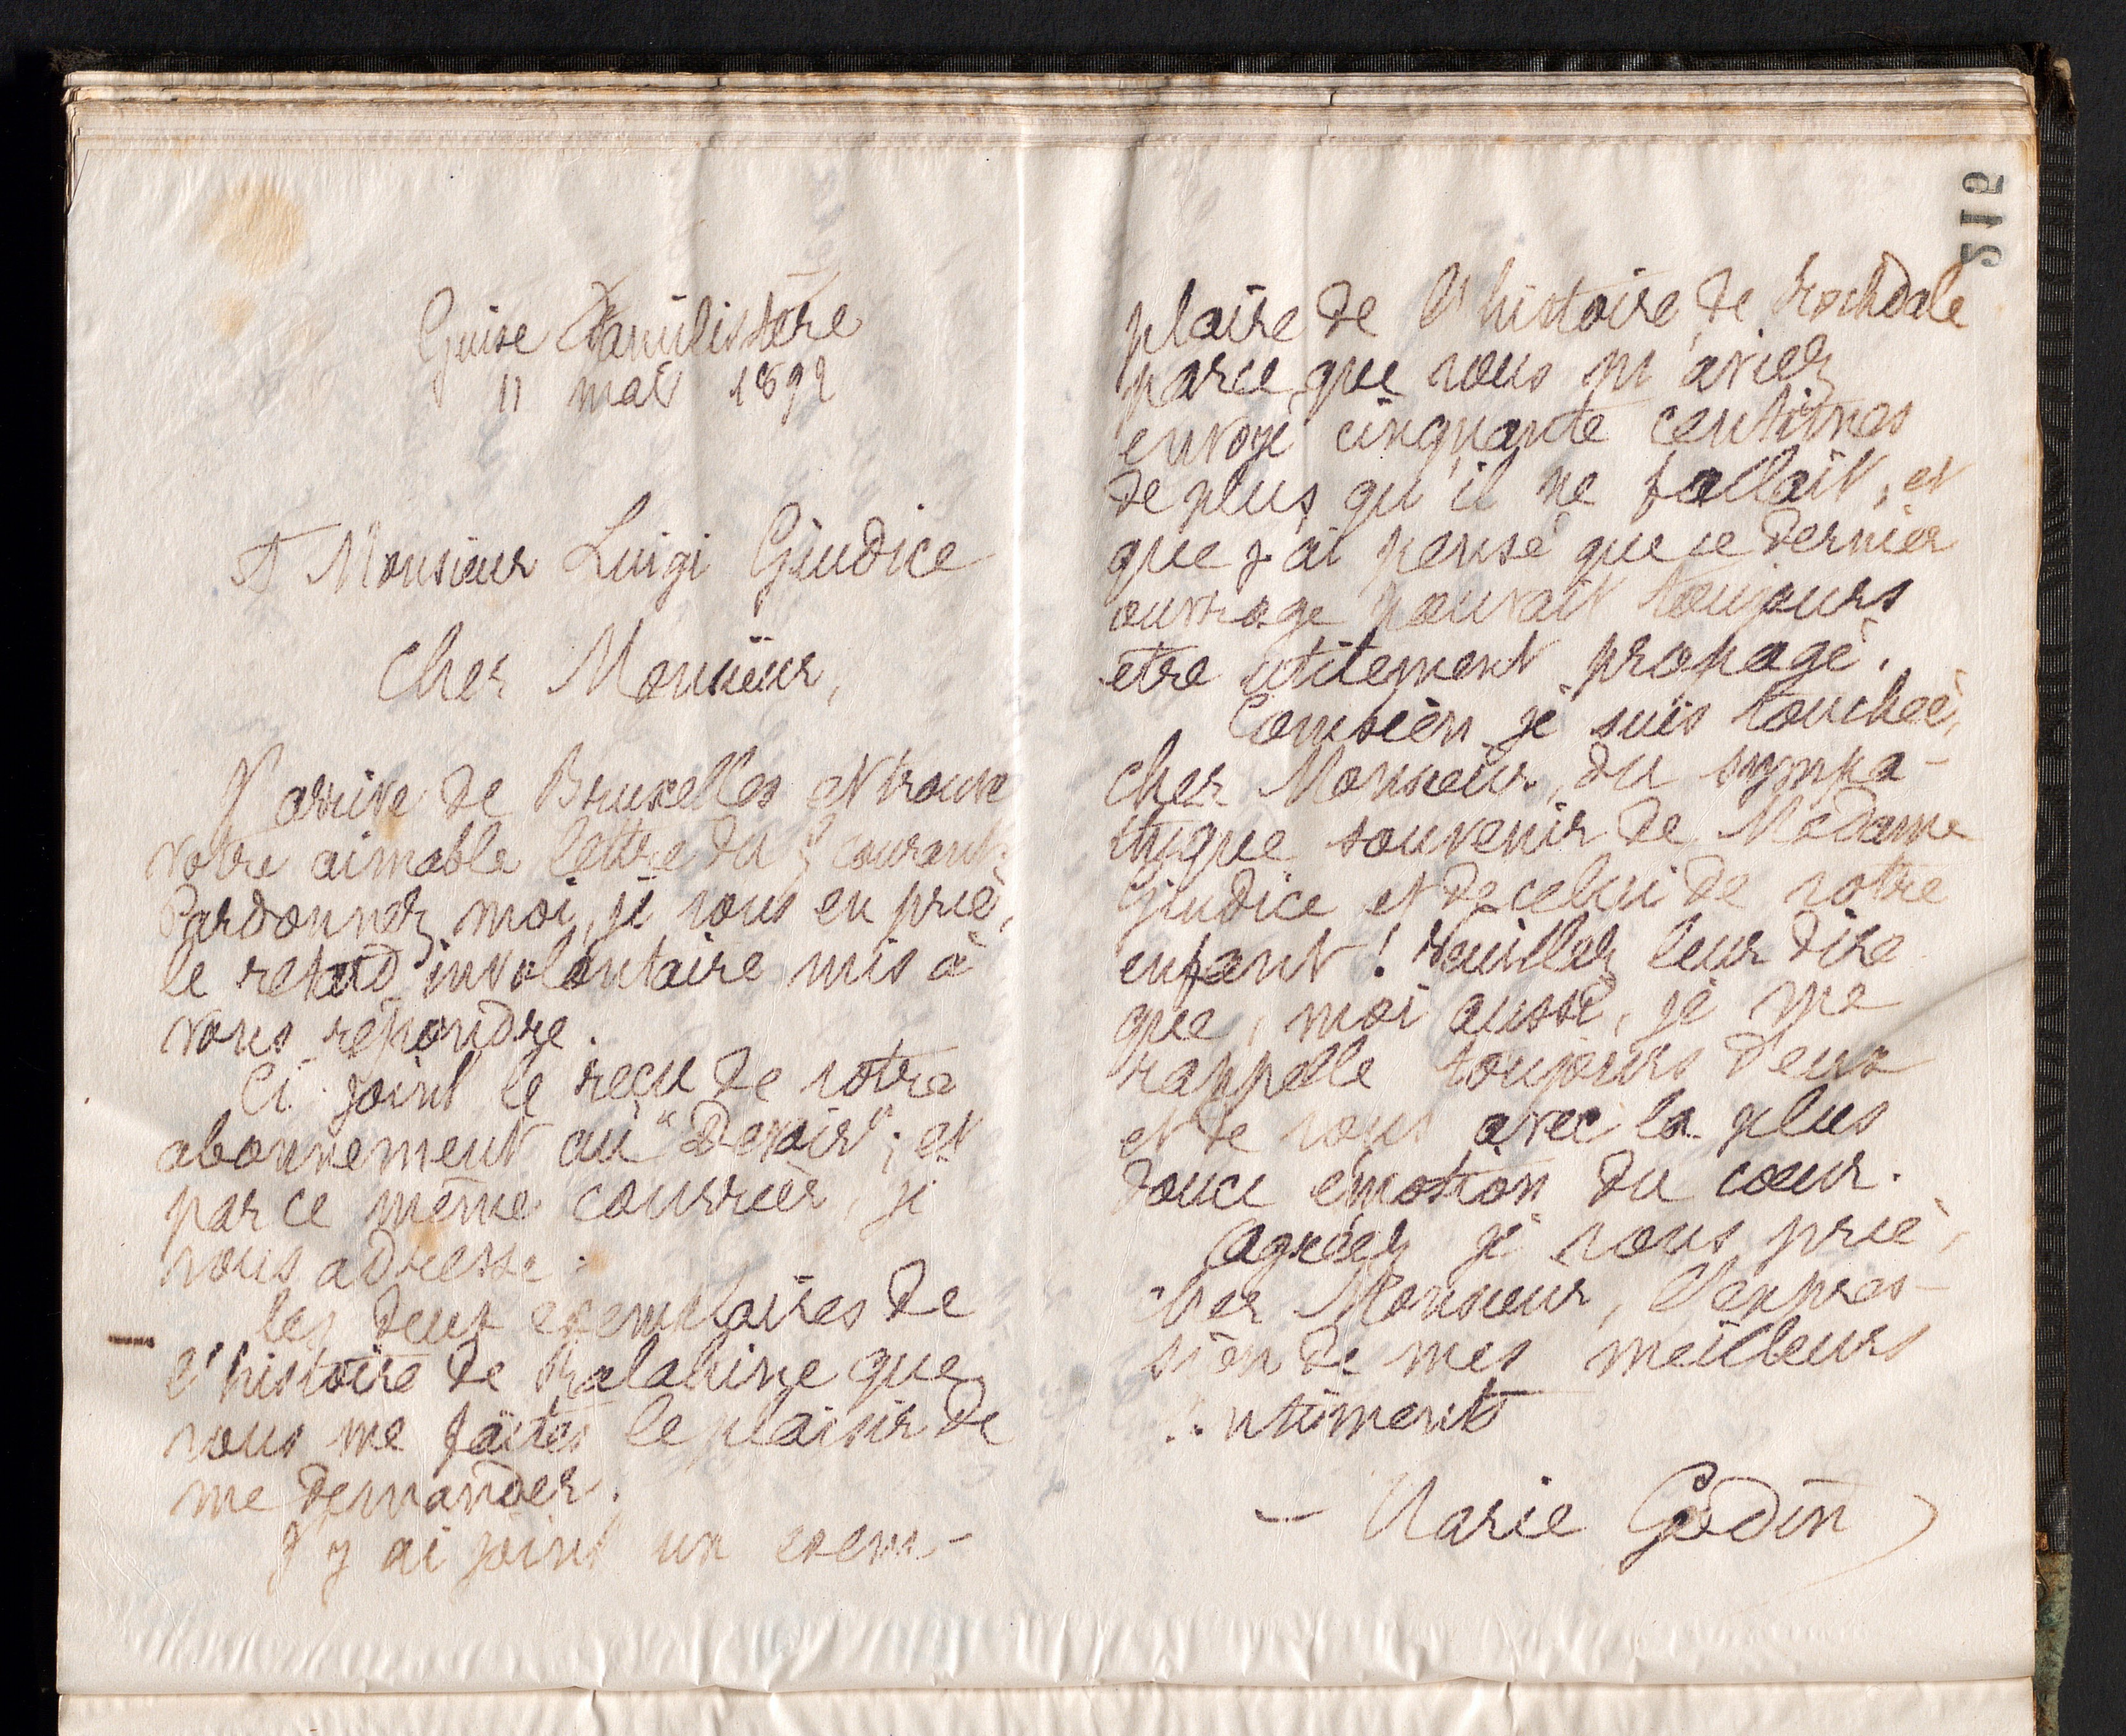 Guise Familistère
11 mai 1892
A Monsieur Luigi Giudice
Cher Monsieur,
J'arrive de Bruxelles et trouve
votre aimable lettre du courant.
Pardonnez moi, je vous en prie,
le retard involontaire mis à
vous répondre.
Ci joint le reçu de votre
abonnement au "Devoir"; et
par ce même courrier, je
vous adresse :
les deux exemplaires de
l'histoire de Ralahine que
vous me faites le plaisir de
me demander.
J'y ai joint un exem-
512
plaire de l'histoire de Rochdale
parce que vous m'aviez
envoyé cinquante centimes
de plus qu'il ne fallait, et
que j'ai pensé que ce dernier
ouvrage pouvait toujours
être utilement propagé.
Combien je suis touchée,
cher Monsieur, du sympa-
thique souvenir de Madame
Giudice et de celui de votre
enfant ! Veuillez leur dire
que, moi aussi, je me
rappelle toujours d'eux
et de vous avec la plus
douce émotion du cœur.
Agréez je vous prie,
cher Monsieur, l'expres-
sion de mes meilleurs
sentiments
Marie Godin